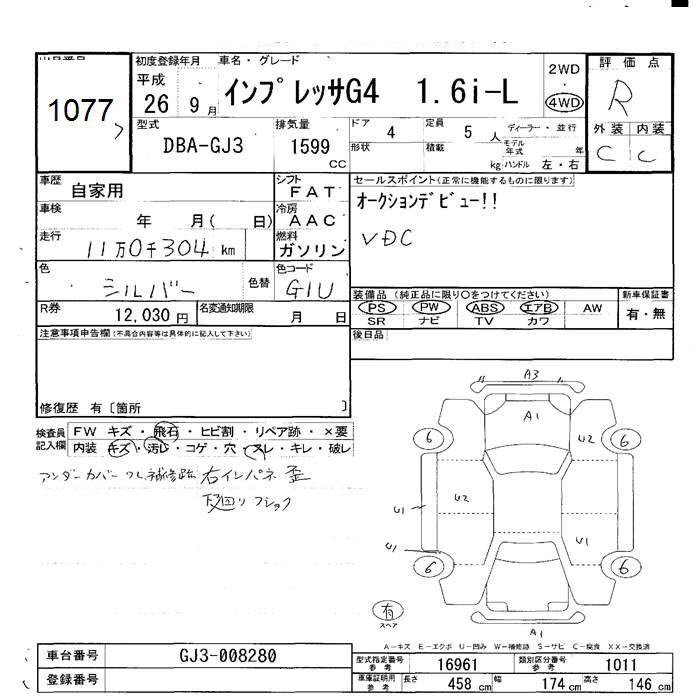 初度登録年月 車名・グレード
平成 26 9月 インプレッサG4 1.6i-L
2WD
4WD
評価点
R
外装 内装
C C
1077
型式 DBA-GJ3
排気量 1599 CC
ドア 4
定員 5 人
ディーラー・並行
形状 積載 kg
モデル年式 年
ハンドル 左・右
車歴 自家用
シフト FAT
車検 年 月( 日)
冷房 AAC
走行 11万0千304 km
燃料 ガソリン
色 シルバー 色替
色コード G1U
R券 12,030円
名変通知期限 月 日
セールスポイント(正常に機能するものに限ります)
オークションデビュー!!
VDC
装備品 (純正品に限り○をつけてください)
PS PW ABS エアB AW
SR ナビ TV カワ
新車保証書
有・無
後日品
注意事項申告欄(不具合内容等は具体的に記入して下さい)
修復歴 有〔箇所 〕
検査員記入欄
FW キズ・飛石・ヒビ割・リペア跡・×要
内装 キズ・汚レ・コゲ・穴・スレ・キレ・破レ
アンダーカバーワレ補修跡 右インパネ歪
下廻りフショク
A3
A1
6 U2 6
U1 U2
U1 U1
6 6
有
スペア
A1
A-キズ E-エクボ U-凹み W-補修跡 S-サビ C-腐食 XX-交換済
車台番号 GJ3-008280
登録番号
型式指定番号 参考 16961
類別区分番号 参考 1011
車庫証明用 参考 長さ 458 cm 幅 174 cm 高さ 146 cm